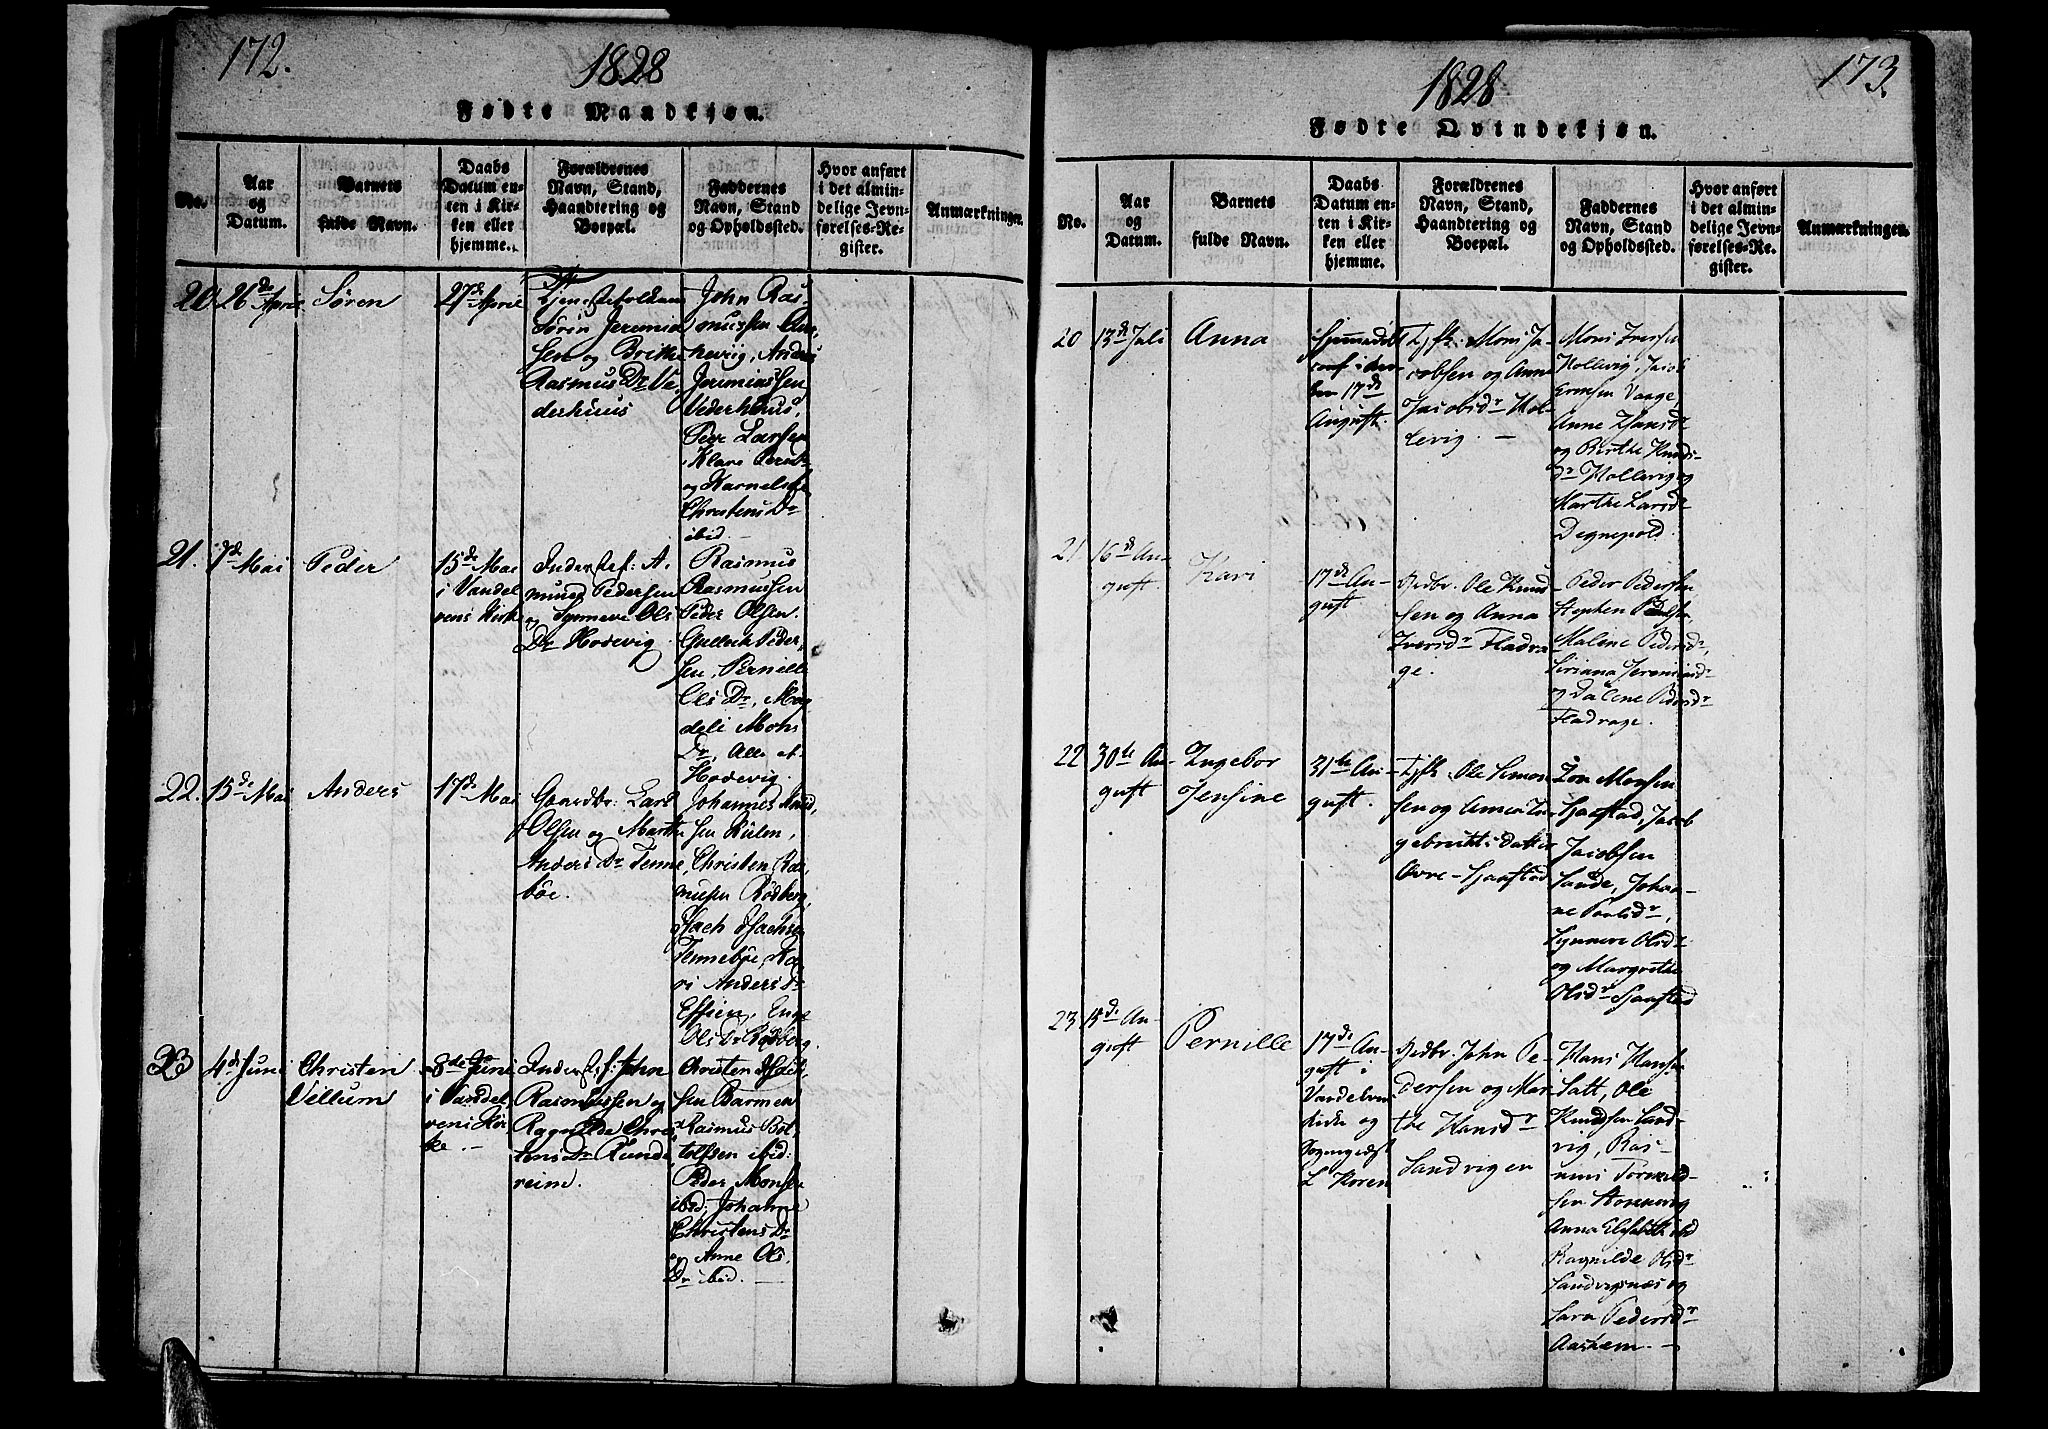 172.
1828
Fødte Mandkjøn.
No.
Aar
og
Datum.
Barnets
fulde Navn.
Daabs
Datum en-
ten i Kir-
ken eller
hjemme.
Forældrenes
Navn, Stand,
Haandtering og
Boepæl.
Faddernes
Navn, Stand
og Opholdssted.
Hvor anført
i det almin-
delige Jevn-
førelses-Re-
gister.
Anmærkninger.
20. 26de April
Søren
27de April
Tjenestefolkene
Sørin Jeremia
sen og Brithe
Rasmus Dr Ve
derhuus
John Ras-
mussen
Anders
Jeremiassen
Vederhuus,
Peder Larsen
og Karnelse
Christens Dr
ibid.
21. 7de Mai
Peder
15de Mai
i Vandel
vens Kirke
Inderstef: A-
mund Pedersen
og Synneve Ols
Dr Hodevig
Rasmus
Rasmussen
Peder Olsen.
Gullvik Peder
sen, Pernille
Ols Dr, Mag
deli Mons
Dr, Alle af
Hodevig.
22. 15de Mai
Anders
17de Mai
Gaardbr. Lars
Olsen og Marthe
Anders Dr Tenne
böe.
Johannes Knud
sen
Christen Ras
musen Rödberg,
Isach Isachsen
Tenneböe, Ka
ri Anders Dr
Ols Dr Rødberg.
23 4de Juni
Christen
Villum
8de Juni
i Vandel
veni Kir
ke.
Inderstef: John
Rasmussen og
Ragnilda Chris
tens Dr Runde
reim.
Christen Isach
sen Barmen
Rasmus Bot
tolfsen ibid:
Peder Monsen
ibid, Johanne
Christens Dr
og Anne Ols
Dr ibid.
173.
1828
Fødte Qvindekjøn.
No.
Aar
og
Datum.
Barnets
fulde Navn.
Daabs
Datum en-
ten i Kir-
ken eller
hjemme.
Forældrenes
Navn, Stand,
Haandtering og
Boepæl.
Faddernes
Navn, Stand
og Opholdssted.
Hvor anført
i det almin-
delige Jevn-
førelses-Re-
gister.
Anmærkninger.
20 13de Juli
Anna
Hjemmedøbt
17de
August.
Tjfk. Mons Ja-
cobsen og Anne
Jacobsdr Hol-
levig.
Mons Iversen
Hollevig, Jacob
Ernsen Vaage,
Anne Hansdr
og Birthe Knuds
dr Hollevig og
Marthe Larsdr
Degnepold.
21 16de Au-
gust.
Kari
17de Au-
gust.
Gdbr. Ole Knud
sen og Anna
Iversdr Fladra
ge.
Peder Pedersen
Stephen Peders
Malene Pedersdr,
Siriana Jeremiasdr
og Dalene Pedersdr
Fladrage.
22 30te Au-
gust
Ingebor
Jensine
31te Au-
gust.
Tjfk. Ole Simon
sen og Amen In
gebreckts datter
Övre-Sjaastad
Jon Monsen
Sjaastad, Jacob
Jacobsen
Sande, Johan-
ne Poulsdr,
Synneve Olsdr
og Margrethe
Olsdr Sjaastad
23 15de Au-
gust
Pernille
17de Au-
gust i
Vandelven
Kirke og
Koren
Gdbr. John Pe-
dersen og Mar
the Hansdr
Sandvigen
Hans Hansen
Satt, Ole
Knudsen Sand-
vig, Ras-
mus
Anna Elisabeth ibd
Ragnilde Olsdr
Sandvignæs og
Sara Pedersdr
Aasheim.